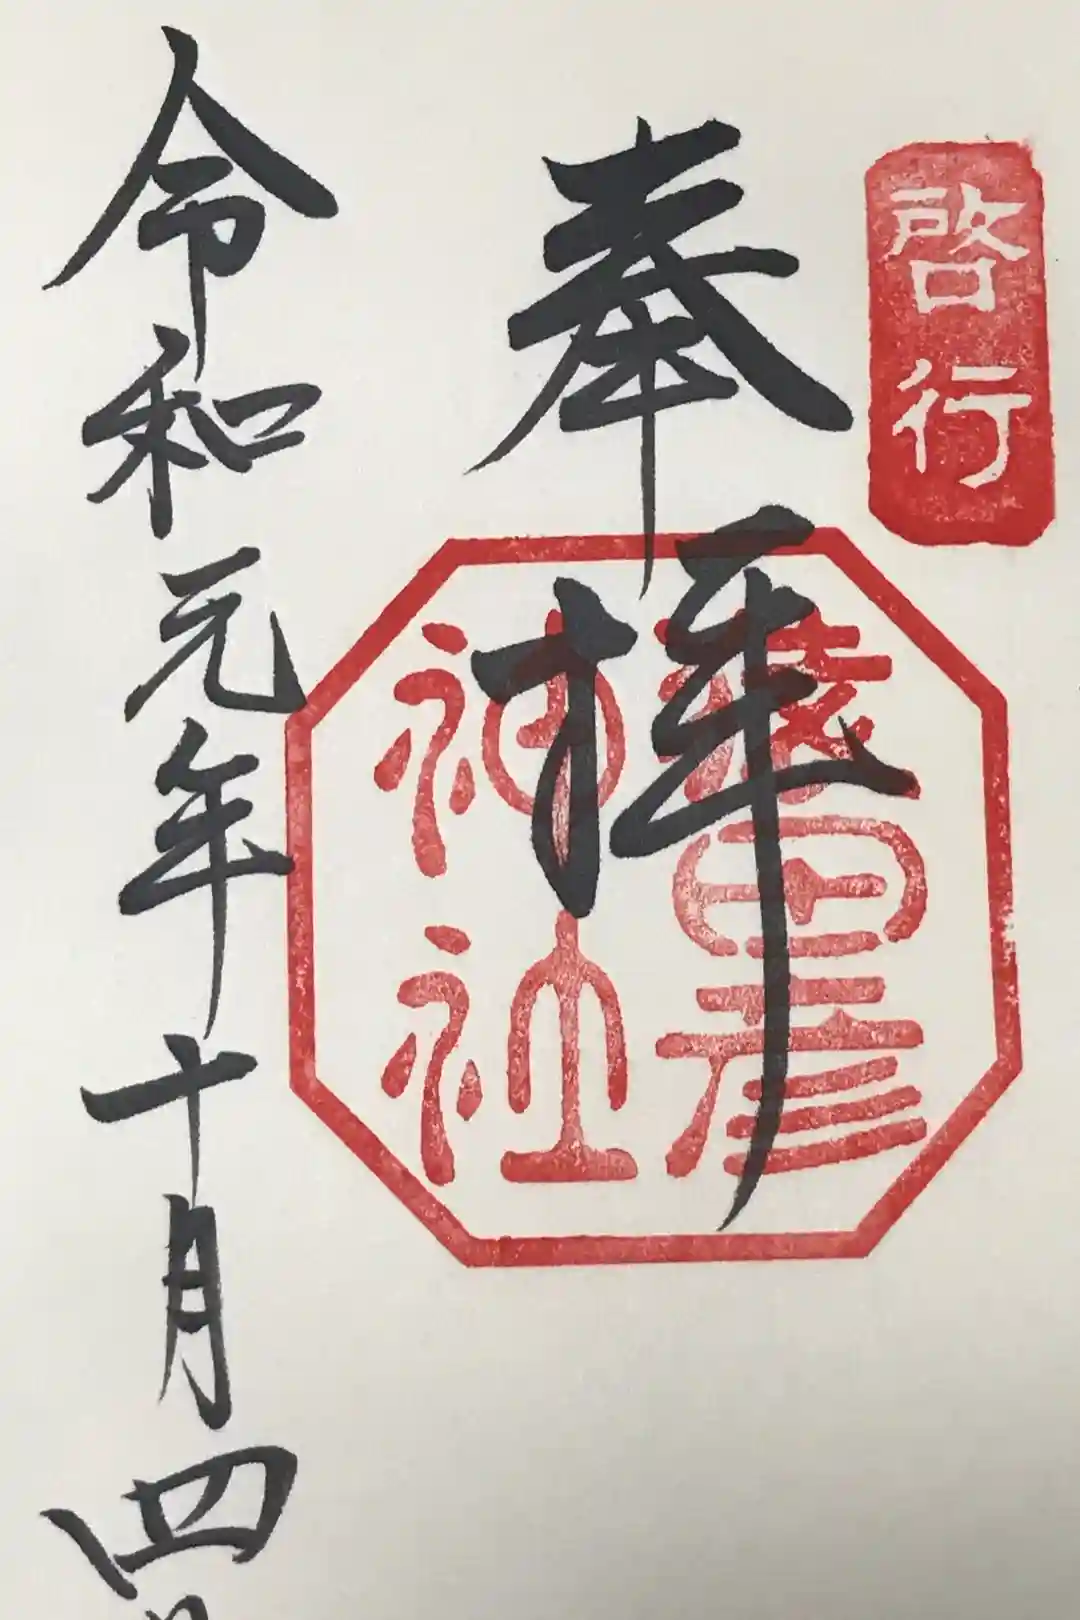 啓行
奉拝
猿田彦
神社
令和元年十月四日